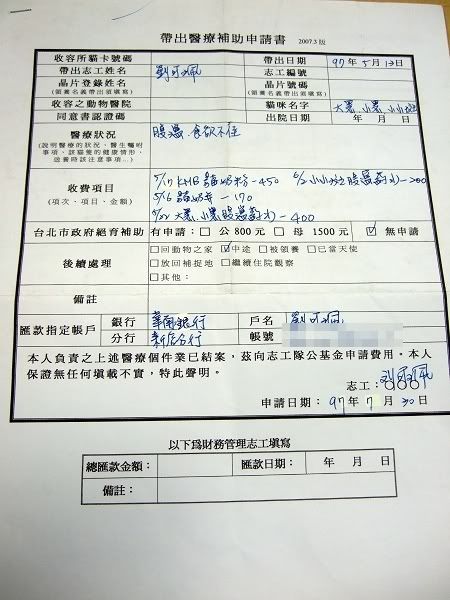 帶出醫療補助申請書 2007.3版
收容所貓卡號碼 帶出日期 97年5月13日
帶出志工姓名 志工編號
晶片登錄姓名 (領養名義帶出須填寫) 晶片號碼 (領養名義帶出須填寫)
收容之動物醫院 貓咪名字
同意書認證碼 出院日期 年 月 日
醫療狀況 腹瀉、食欲不佳
(說明醫療的狀況、醫生囑咐事項、該貓隻的健康情形,送養時該注意事項...)
收費項目 5/17 KMR 貓奶粉-450
(項次、項目、金額) 5/16 貓奶 -170
-400
台北市政府絕育補助 有申請:□公800元 □母1500元 ☑無申請
後續處理 □回動物之家 ☑中途 □被領養 □已當天使
□放回捕捉地 □繼續住院觀察
□其他:
備註
匯款指定帳戶 銀行 華南銀行 戶名
分行 新店分行 帳號
本人負責之上述醫療個件業已結案,茲向志工隊公基金申請費用。本人
保證無任何填載不實,特此聲明。
志工:
申請日期:97年7月30日
以下為財務管理志工填寫
總匯款金額: 匯款日期: 年 月 日
備註: